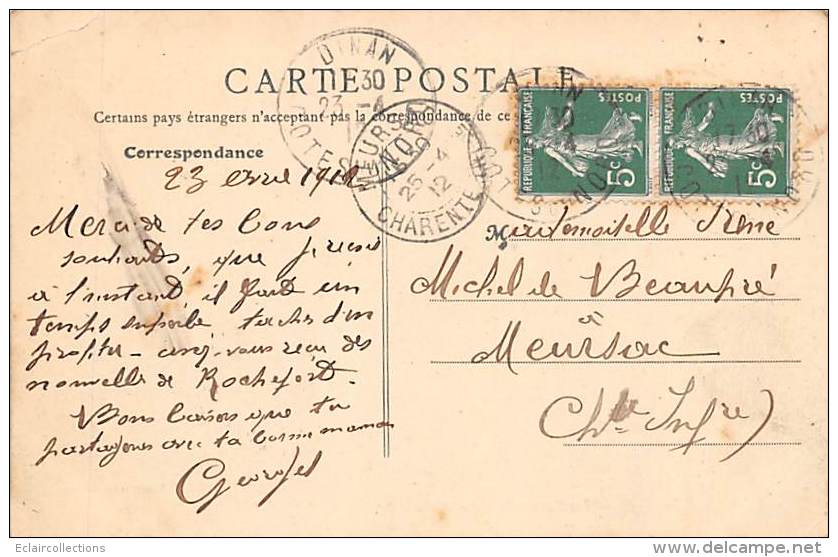 CARTE POSTALE
Certains pays étrangers n'acceptant pas la correspondance de ce
Correspondance
23 avril 1912
Merci de tes bons
souhaits, que je reçois
à l'instant, il fait un
temps superbe tachez d'en
profiter - avez-vous reçu des
nouvelle de Rochefort.
Bons baisers que tu
partageras avec ta bonne maman
Georges
DINAN
30
23 -4
COTES DU NORD
MEURSAC
25 -4
12
CHARENTE
REPUBLIQUE FRANÇAISE
POSTES
5c
REPUBLIQUE FRANÇAISE
POSTES
5c
Mademoiselle Irène
Michel de Beaupré
à
Meursac
(Chte Infre)
Eclaircollections
www.delcampe.net